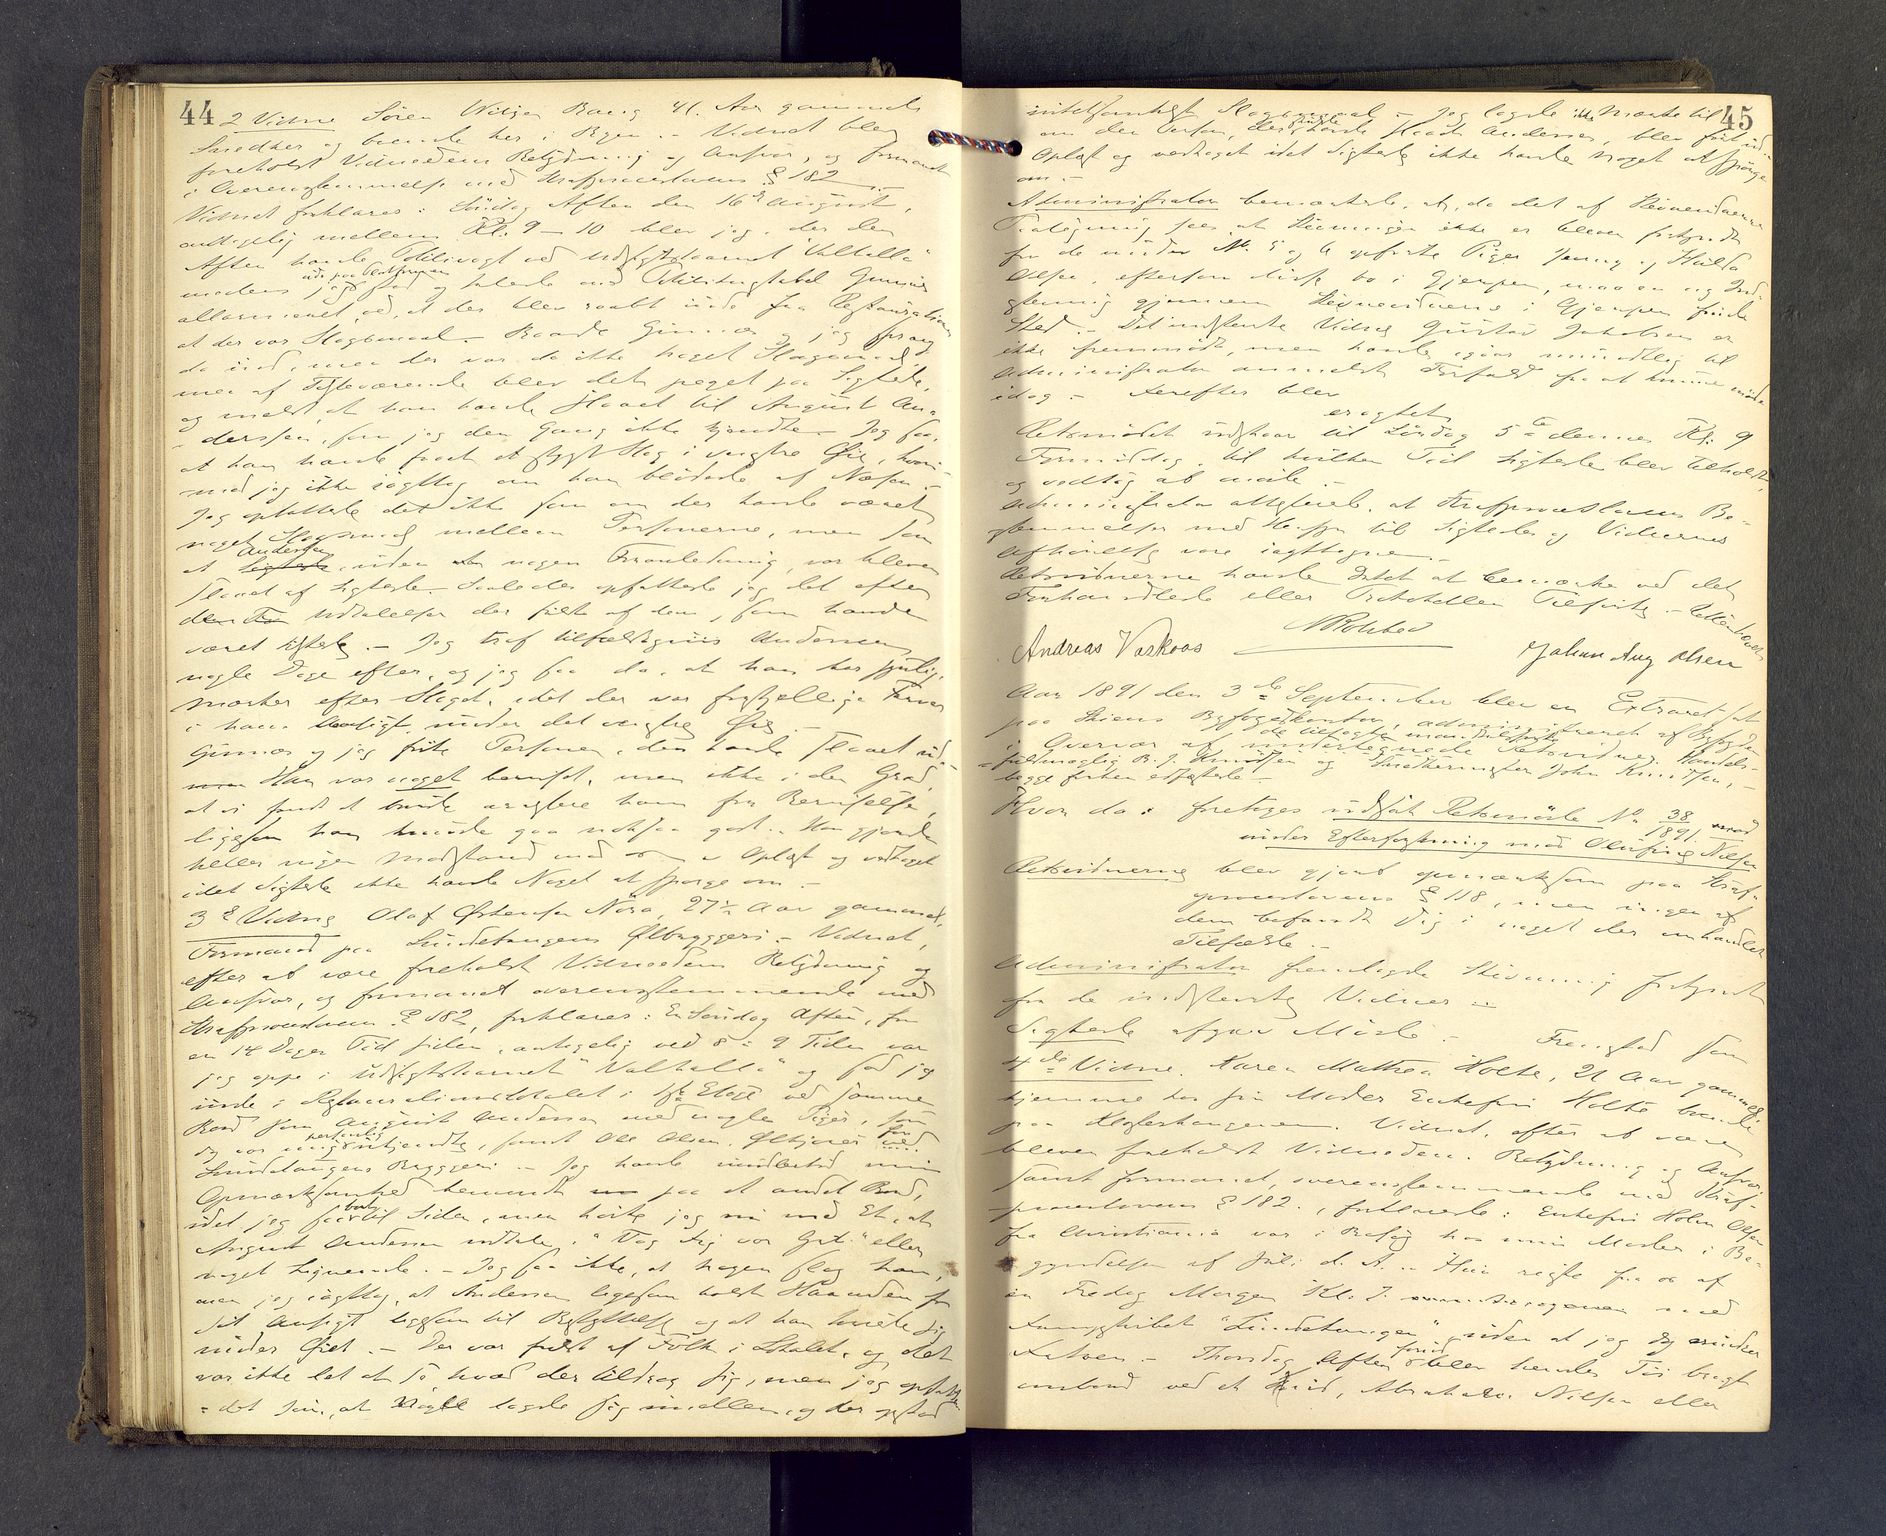 44
2 Vidne Sören Bang 41 Aar gammel
Snedker og boende her i Byen. – Vidnet blev
foreholdt Vidneedens Betydning og Ansvar, og formanet
i Overensstemmelse med Straffproceslovens § 182.
Vidnet forklares: Söndag Aften den 16de August,
antagelig mellem Kl. 9–10 blev jeg, der den
Aften havde Politivagt ved Udsigtstaarnet "Valhalla"
medens jeg stod ude paa Platformen og talede med Politikonstabel Gunnæs
allarmeret ved, at der blev raabt inde fra Restaurationen
at der var Slagsmaal. – Baade Gunnæs og jeg sprang
da ind, men der var da ikke noget Slagsmaal,
men af Tilstedeværende blev det peget paa Sigtede,
og meldt at han havde slaaet til August An-
derssen, som jeg den Gang ikke kjendte. Jeg saa,
at han havde faaet et stygt Slag i venstre Øie, hvori-
mod jeg ikke iagttog om han blödede af Næsen. –
Jeg opfattede det ikke som om der havde været
noget Slagsmaal mellem Personerne, men som
at Andersen, uden nogen Foranledning, var bleven
slaaet af Sigtede. Saaledes opfattede jeg det efter
Udtalelser der faldt af dem, som havde
været tilstede. – Jeg traf tilfældigvis Andersen
nogle Dage efter, og jeg saa da, at han bar synlige
Mærker efter Slaget, idet der var forskjellige Farver
i hans Ansigt under det venstre Øie. –
Gunnæs og jeg förte Personen, der havde slaaet ud. –
Han var noget beruset, men ikke i den Grad,
at vi fandt at burde arrestere ham for Beruselse,
ligesom han kunde gaa noksaa godt. – Han gjorde
heller ingen Modstand mod os. – Oplæst og vedtaget
idet Sigtede ikke havde Noget at spörge om. –
3de Vidne Olaf Østensen Nöra, 27½ Aar gammel,
Formand paa Lundetangens Ølbryggeri. – Vidnet,
efter at være foreholdt Vidneedens Betydning og
Ansvar, og formanet overensstemmende med
Straffproceslovens § 182, forklares: En Söndag Aften, for
en 14 Dages Tid siden, antagelig ved 8 à 9 Tiden var
jeg oppe i Udsigtstaarnet "Valhalla" og sad jeg
inde i Restaurationslokalet i 1ste Etage ved samme
Bord som August Andersen med nogle Piger, som
jeg var personlig ukjendt, samt Ole Olsen, Ølkjører for
Lundetangens Bryggeri. – Jeg havde imidlertid min
Opmærksomhed henvendt paa et andet Bord,
idet jeg sad bort til Siden, men hörte jeg med Et, at
August Andersen udtale: "Vog dig vor Gut" eller
noget Lignende. – Jeg saa ikke, at nogen slog ham,
men jeg iagttog, at Andersen ligesom holdt Haanden for
sit Ansigt ligesom til Beskyttelse og at han
under Øiet. – Der var fuldt af Folk i Lokalet, og det
var ikke let at se hvad der tildrog sig, men jeg opfattede
det som, at Nogle lagde sig imellem, og der opstod
45
Slagsmaal – Jeg lagde ikke Mærke til
om den Person, der havde slaaet Andersen, blev fört ud
Oplæst og vedtaget idet Sigtede ikke havde noget at spörge
om. –
Administrator bemærkede, at, da det af Stevnevidnernes
Paategning sees at Stevningen ikke er bleven forkyndt
for de under No 5 og 6 opförte Piger Jenny og Hulda
Olsen, eftersom disse bo i Gjerpen, maa en ny Ind-
stevning gjennem Stevnevidnerne i Gjerpen finde
Sted. – Det indstevnte Vidne Gustav Jakobsen er
ikke fremmödt, men havde igaar mundtlig til
Administrator anmeldt Forfald fra at kunne möde
idag. – Derefter blev
eragtet
Retsmödet udstaar til Lördag 5te dennes Kl. 9
Formiddag, til hvilken Tid Sigtede blev tilholdt,
og vedtog at möde. –
Administrator attesterede, at Straffproceslovens Be-
stemmelser med Hensyn til Sigtedes og Vidnernes
Afhörelse vare iagttagne. –
Retsvidnerne havde Intet at bemærke ved det
Forhandlede eller Protokollen Tilförte. –
Andreas Varkoas
Johan Aug Olsen
Aar 1891 den 3de September blev en Extraret sat
paa Skiens Byfogedkontor, administreret af Byfogden
i Overvær af de tilsagte undertegnede Retsvidner, Handels-
fuldmægtig B. J. Knudsen og Snedkermester John Knudsen,
begge forhen edfæstede. –
Hvor da: foretoges udsat Retsmöde No 38/1891
under Efterforskning mod Olufine Nilsen
Retsvidnerne blev gjort opmærksom paa Straf-
proceslovens § 118, men ingen af
dem befandt sig i noget der omhandlet
Tilfælde. –
Administrator fremlagde Stevning forkyndt
for de indstevnte Vidner. –
Sigtede afgav Möde. – Fremstod som
4de Vidne. Karen Mathea Holte, 21 Aar gammel,
hjemme hos sin Moder Enkefru Holte boende
paa . Vidnet, efter at være
bleven foreholdt Vidneedens Betydning og Ansvar,
samt formanet, overensstemmende med Straf-
proceslovens § 182., forklarede: Enkefru Holm Olsen
fra Christiania var i Besög hos min Moder i Be-
gyndelsen af Juli d. A. – Hun reiste fra os af
en Fredag Morgen Kl. 7 med
Dampskibet "Lundetangen", uden at jeg
. – Thorsdag Aften forud blev hendes Töi bragt
ombord ved et Bud, Abraham Nilsen eller